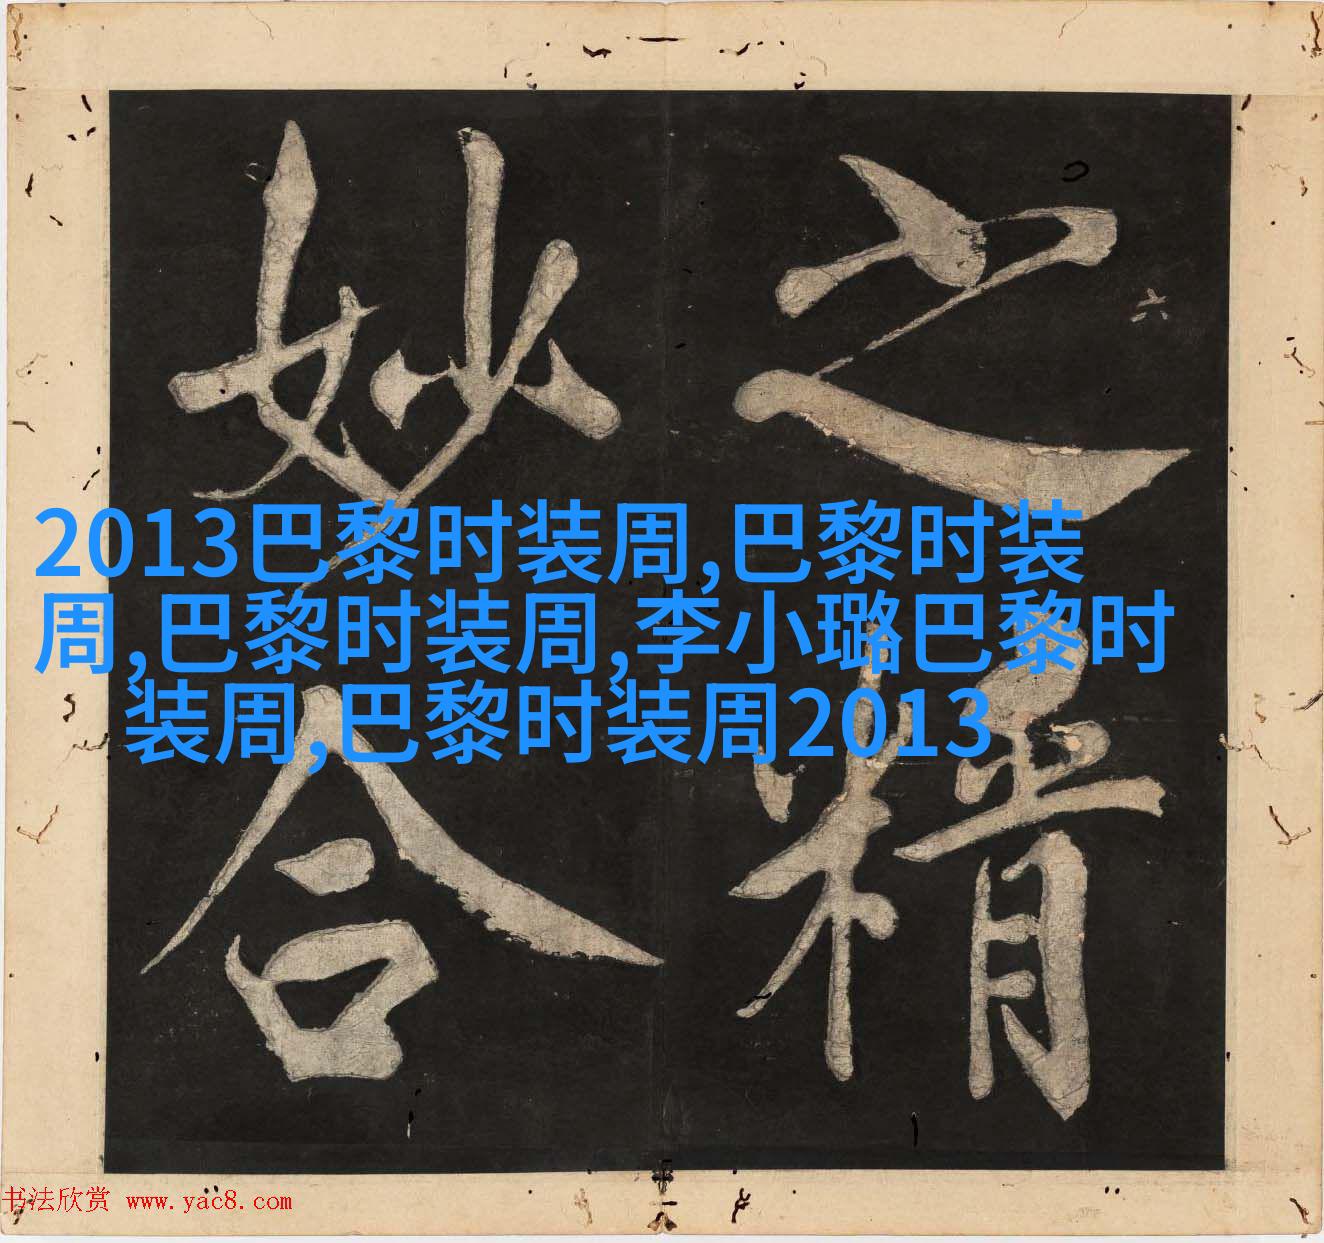 2013巴黎时装周,巴黎时装
周,巴黎时装周,李小璐巴黎时
装周,巴黎时装周2013
之精
妙合
六
书法欣赏 www.yac8.com